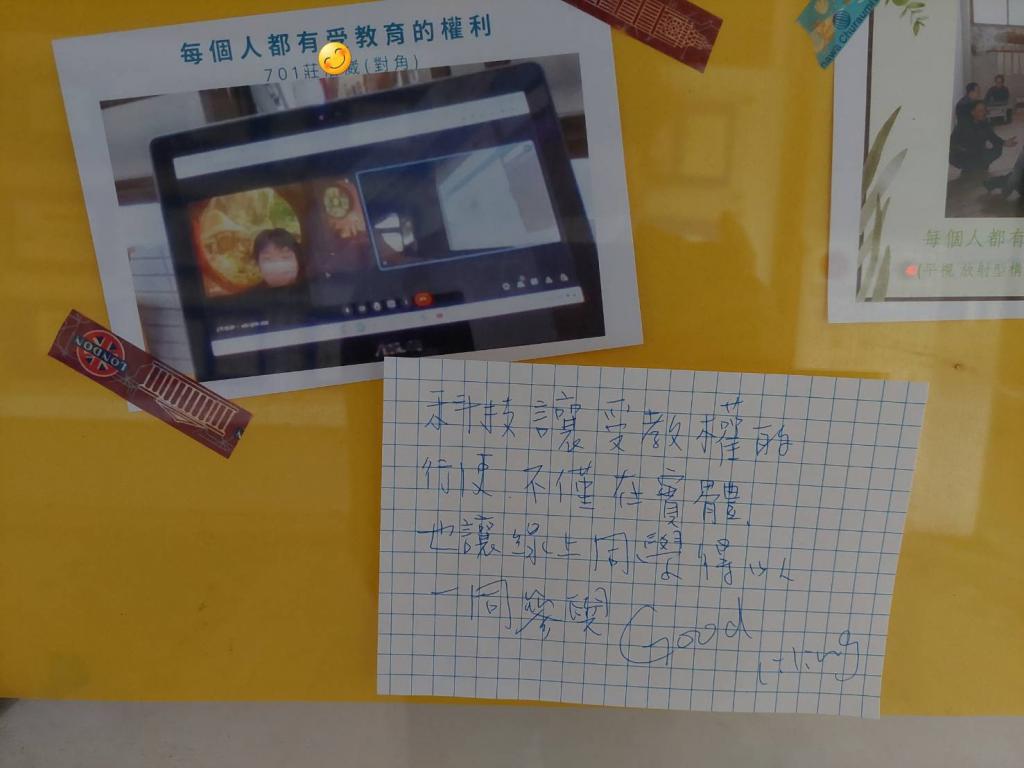 每個人都有受教育的權利
701莊 葳(對角)
LONDON
每個人都有
(平視 放射型構
科技讓受教權的
行使 不僅在實體
也讓線上同學得以
一同參與 Good